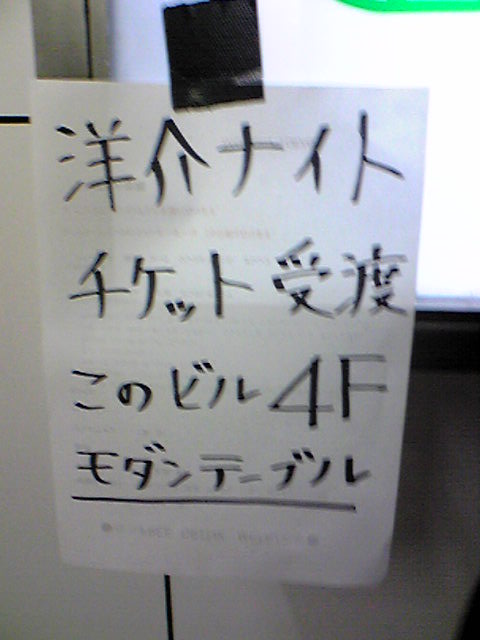 洋介ナイト
チケット受渡
このビル4F
モダンテーブル